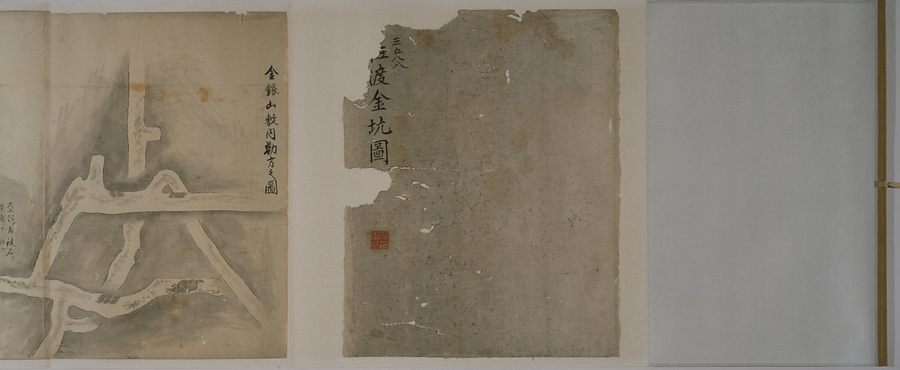 三五八八
佐渡金坑圖
金銀山敷内勤方之圖